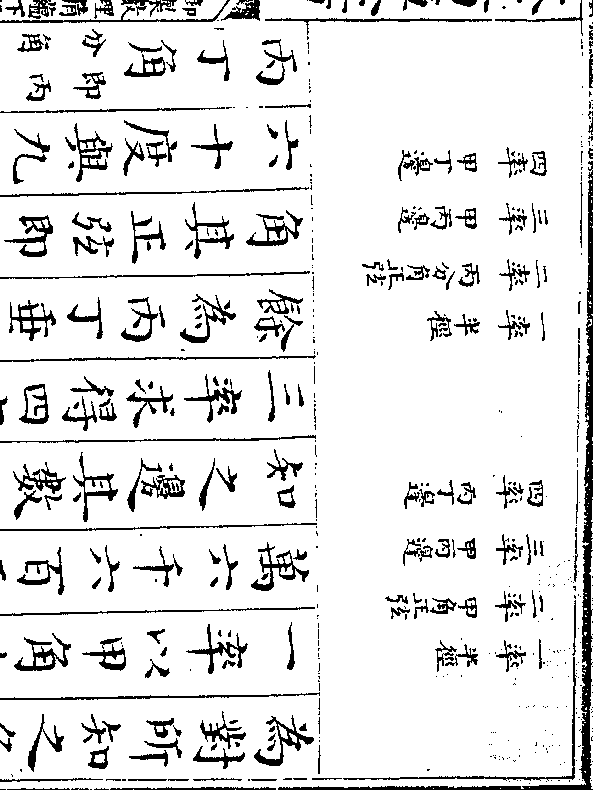 一率 半徑
二率 甲角正弦
三率 甲丙邊
四率 丙丁邊
一率 半徑
二率 丙分角正弦
三率 甲丙邊
四率 甲丁邊
為對所知之
一率以甲角
萬六千六百
知之邊其數
三率求得四
餘為丙丁垂
角其正弦即
六十度與九
丙丁角即丙分角